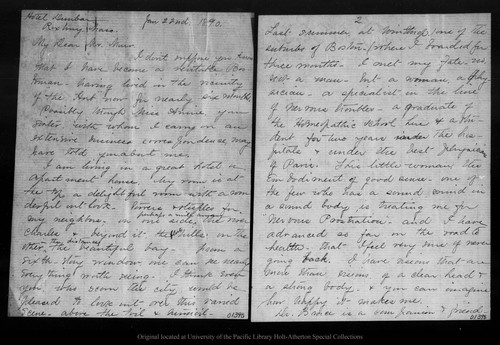 Hotel
Roxbury Mass.
Jan 22nd 1890.
My Dear Mr. Muir.
I don't suppose you know
that I have become a veritable Bos
tonian. Having lived in the vicinity
of the Hub now for nearly six months
Possibly though Miss Annie your
sister, with whom I carry on an
extensive business correspondence may
have told you about me.
I am living in a great hotel or
apartment house, my room is at
the top, a delightful room with a won
derful outlook.
my neighbor. on one side the river
Charles & beyond it the hills, on the
other the beautiful bay from my
sixth story window one can see nearly
every thing worth seeing. I think even
you who scorn the city would be
pleased to look out over this varied
scene. above the toil &
01395
2
Last summer at Winthrop (one of the
suburbs of Boston) where I boarded for
three months. I met my fate, not
a man. but a woman, a phy
sician. a specialist in the line
of Nervous troubles. a graduate of
the Homeopathic school here & a stu
dent for two years under the hos
pitals & under the best Physicians
of Paris. This little woman the
Embodiment of good sense. one of
the few who has a sound mind in
a sound body is treating me for
"Nervous Prostration" and I have
advanced so far on the road to
health that I feel very sure of never
going back. I have means that are
more than means of a clear head &
a strong body. & you can imagine
how happy it makes me.
Dr. Baker is a companion & friend
01395
Original located at University of the Pacific Library Holt-Atherton Special Collections